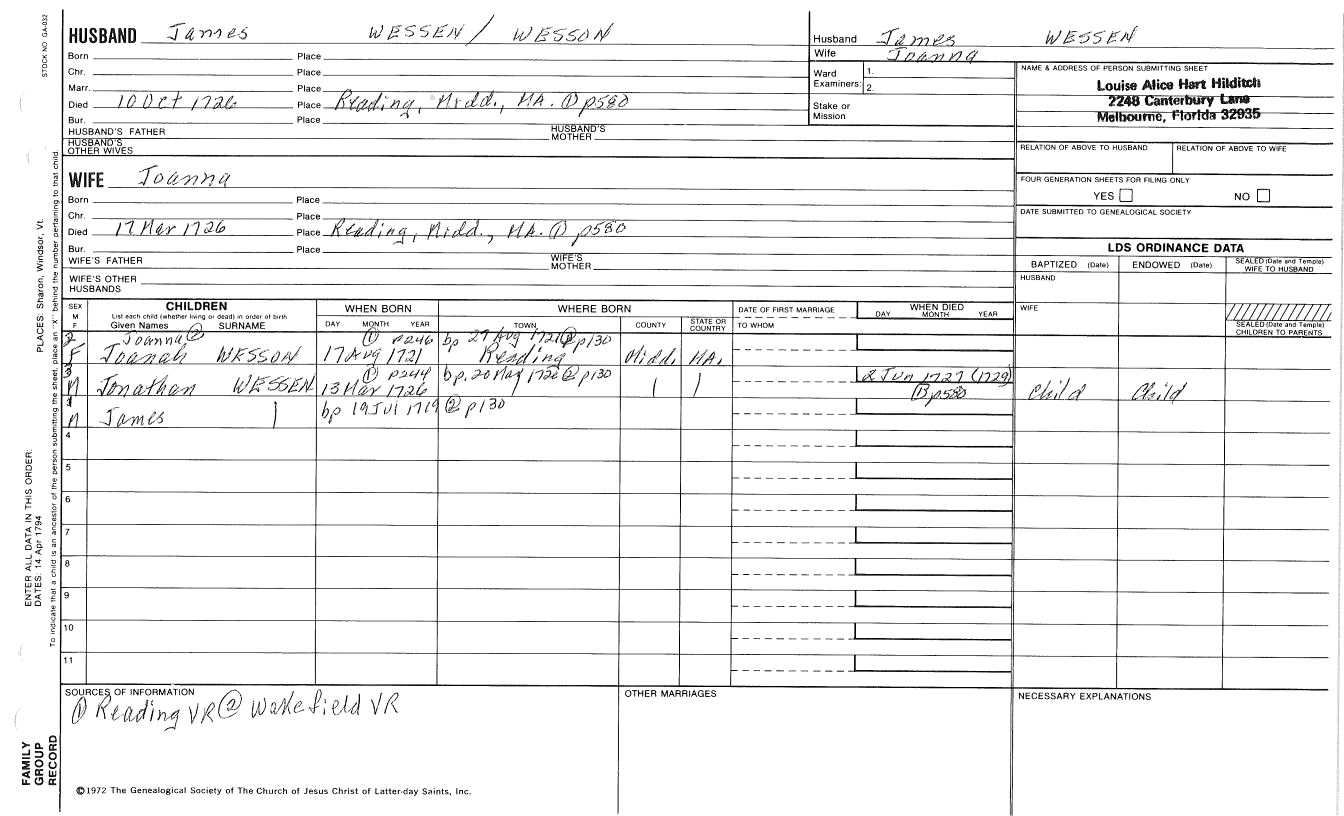 STOCK NO GA-032
HUSBAND James WESSEN / WESSON
Born Place
Chr. Place
Marr. Place
Died 10 Oct 1726 Place Reading, Midd., MA. ① p580
Bur. Place
HUSBAND'S FATHER HUSBAND'S MOTHER
HUSBAND'S OTHER WIVES
Husband James WESSEN
Wife Joanna
Ward Examiners: 1.
2.
Stake or Mission
NAME & ADDRESS OF PERSON SUBMITTING SHEET
Louise Alice Hart Hilditch
2248 Canterbury Lane
Melbourne, Florida 32935
RELATION OF ABOVE TO HUSBAND RELATION OF ABOVE TO WIFE
FOUR GENERATION SHEETS FOR FILING ONLY
YES NO
DATE SUBMITTED TO GENEALOGICAL SOCIETY
WIFE Joanna
Born Place
Chr. Place
Died 17 Mar 1726 Place Reading, Midd., MA. ① p580
Bur. Place
WIFE'S FATHER WIFE'S MOTHER
WIFE'S OTHER HUSBANDS
LDS ORDINANCE DATA
BAPTIZED (Date) ENDOWED (Date) SEALED (Date and Temple) WIFE TO HUSBAND
HUSBAND
WIFE
SEALED (Date and Temple) CHILDREN TO PARENTS
SEX M F CHILDREN WHEN BORN WHERE BORN DATE OF FIRST MARRIAGE WHEN DIED
List each child (whether living or dead) in order of birth
Given Names SURNAME DAY MONTH YEAR TOWN COUNTY STATE OR COUNTRY TO WHOM DAY MONTH YEAR
2 Joanna ② ① p246 bp 27 Aug 1721 ② p130
F Joanah WESSON 17 Aug 1721 Reading Midd. MA.
3 ① p244 bp, 20 Mar 1726 ② p130 2 Jun 1727 (1729)
M Jonathan WESSEN 13 Mar 1726 ① p580 Child Child
1 bp 19 Jul 1719 ② p130
M James
4
5
6
7
8
9
10
11
SOURCES OF INFORMATION
① Reading VR ② Wakefield VR
OTHER MARRIAGES
NECESSARY EXPLANATIONS
©1972 The Genealogical Society of The Church of Jesus Christ of Latter-day Saints, Inc.
ENTER ALL DATA IN THIS ORDER:
DATES: 14 Apr 1794 PLACES: Sharon, Windsor, Vt.
To indicate that a child is an ancestor of the person submitting the sheet, place an "X" behind the number pertaining to that child.
FAMILY
GROUP
RECORD